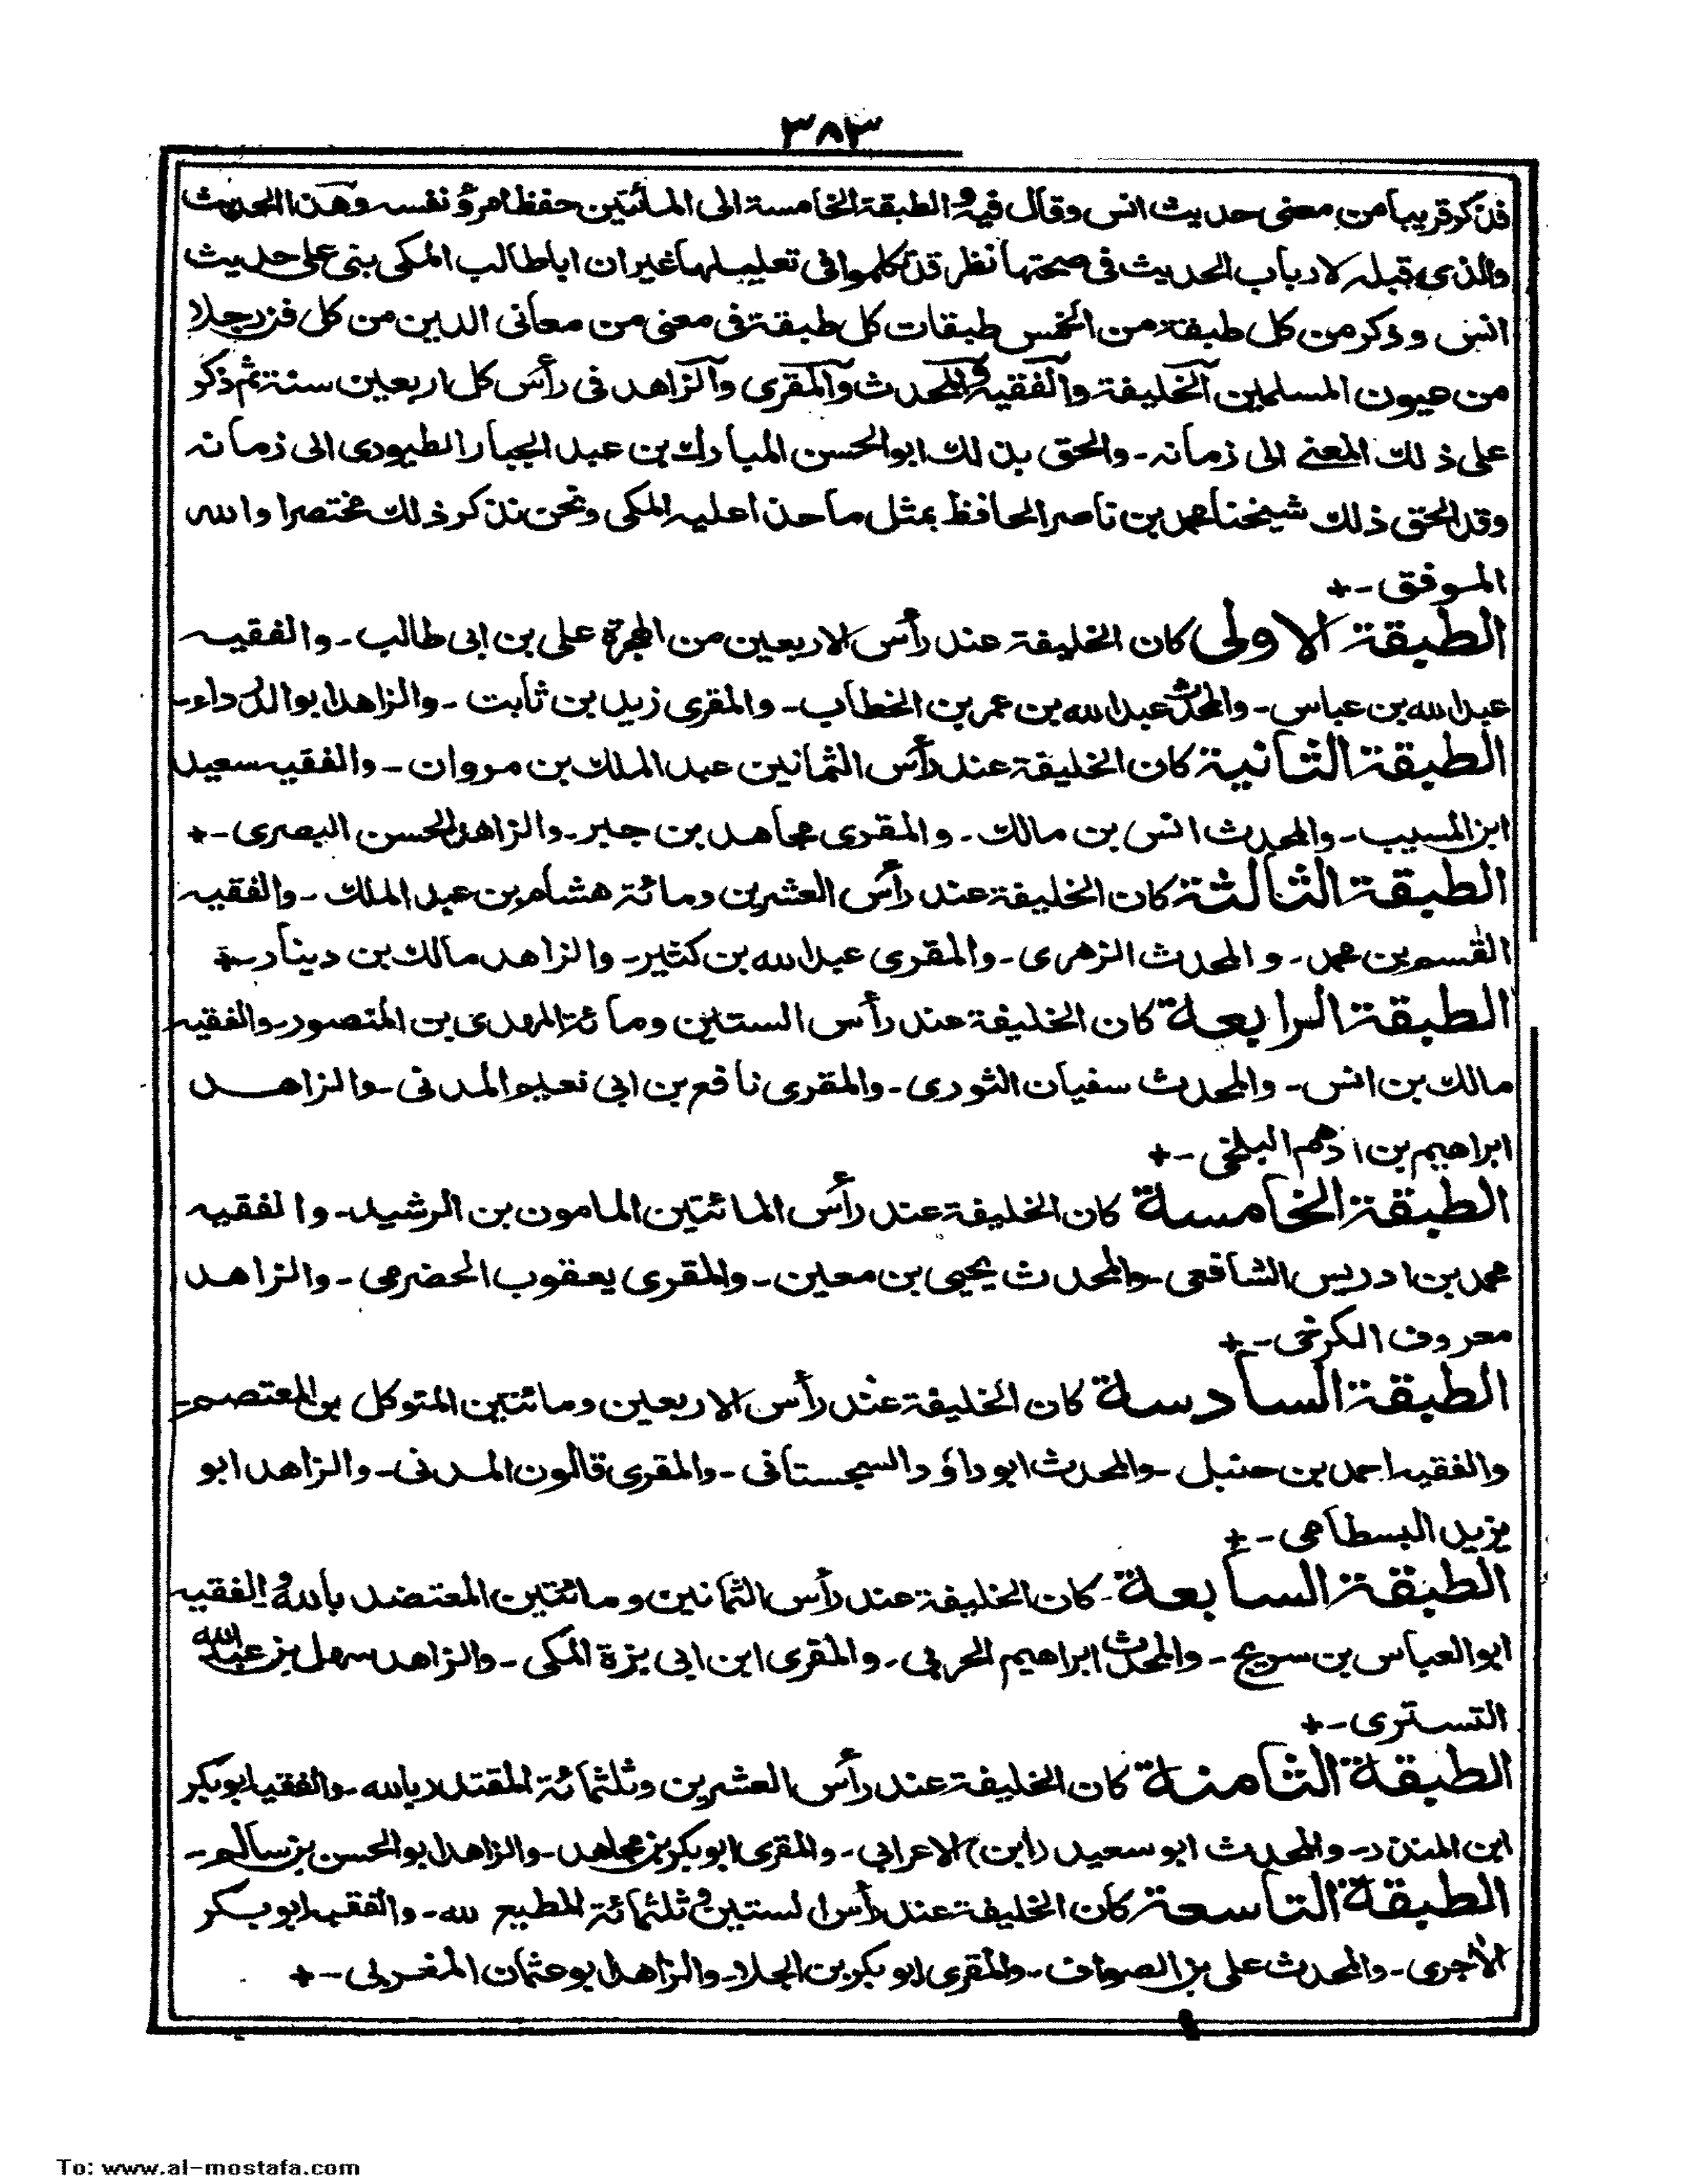 ٣٨٣
فذكر قريبا من معنى حديث انس وقال فيه والطبقة الخامسة الى المائتين حفظ امرؤ نفسه وهذا الحديث
والذي قبله لارباب الحديث في صحتها نظر قد تكلموا في تعليلها غير ان ابا طالب المكى بنى على حديث
انس وذكر من كل طبقة من الخمس طبقات كل طبقة في معنى من معاني الدين من كل فن رجلا
من عيون المسلمين الخليفة والفقيه والمحدث والمقرى والزاهد في رأس كل اربعين سنة ثم ذكر
على ذلك المعنے الى زمانه - والحق بذلك ابو الحسن المبارك بن عبد الجبار الطيورى الى زمانه
وقد الحق ذلك شيخنا محمد بن ناصر الحافظ بمثل ما حذا عليه المكى ونحن نذكر ذلك مختصرا والله
الموفق -+
الطبقة الاولى كان الخليفة عند رأس الاربعين من الهجرة على بن ابى طالب - والفقيه
عبد الله بن عباس - والمحدث عبد الله بن عمر بن الخطاب - والمقرى زيد بن ثابت - والزاهد ابو الدرداء -
الطبقة الثانية كان الخليفة عند رأس الثمانين عبد الملك بن مروان - والفقيه سعيد
ابن المسيب - والمحدث انس بن مالك - والمقرى مجاهد بن جبر - والزاهد الحسن البصرى -+
الطبقة الثالثة كان الخليفة عند رأس العشرين ومائة هشام بن عبد الملك - والفقيه
القسم بن محمد - والمحدث الزهرى - والمقرى عبد الله بن كثير - والزاهد مالك بن دينار -+
الطبقة الرابعة كان الخليفة عند رأس الستين ومائة المهدى بن المنصور - والفقيه
مالك بن انس - والمحدث سفيان الثورى - والمقرى نافع بن ابى نعيم المدنى - والزاهد
ابراهيم بن ادهم البلخى -+
الطبقة الخامسة كان الخليفة عند رأس المائتين المامون بن الرشيد - والفقيه
محمد بن ادريس الشافعى - والمحدث يحيى بن معين - والمقرى يعقوب الحضرمى - والزاهد
معروف الكرخى -+
الطبقة السادسة كان الخليفة عند رأس الاربعين ومائتين المتوكل بن المعتصم -
والفقيه احمد بن حنبل - والمحدث ابو داؤد السجستانى - والمقرى قالون المدنى - والزاهد ابو
يزيد البسطامى -+
الطبقة السابعة - كان الخليفة عند رأس الثمانين ومائتين المعتضد بالله والفقيه
ابو العباس بن سريج - والمحدث ابراهيم الحربي - والمقرى ابن ابي بزة المكى - والزاهد سهل بن عبد الله
التسترى -+
الطبقة الثامنة كان الخليفة عند رأس العشرين وثلثمائة المقتدر بالله - والفقيه ابو بكر
ابن المنذر - والمحدث ابو سعيد (ابن) الاعرابي - والمقرى ابو بكر بن مجاهد - والزاهد ابو الحسن بن سالم -
الطبقة التاسعة كان الخليفة عند رأس الستين وثلثمائة المطيع لله - والفقيه ابو بكر
الأجرى - والمحدث على بن الصواف - والمقرى ابو بكر بن الجلاد - والزاهد ابو عثمان المغربى -+
To: www.al-mostafa.com